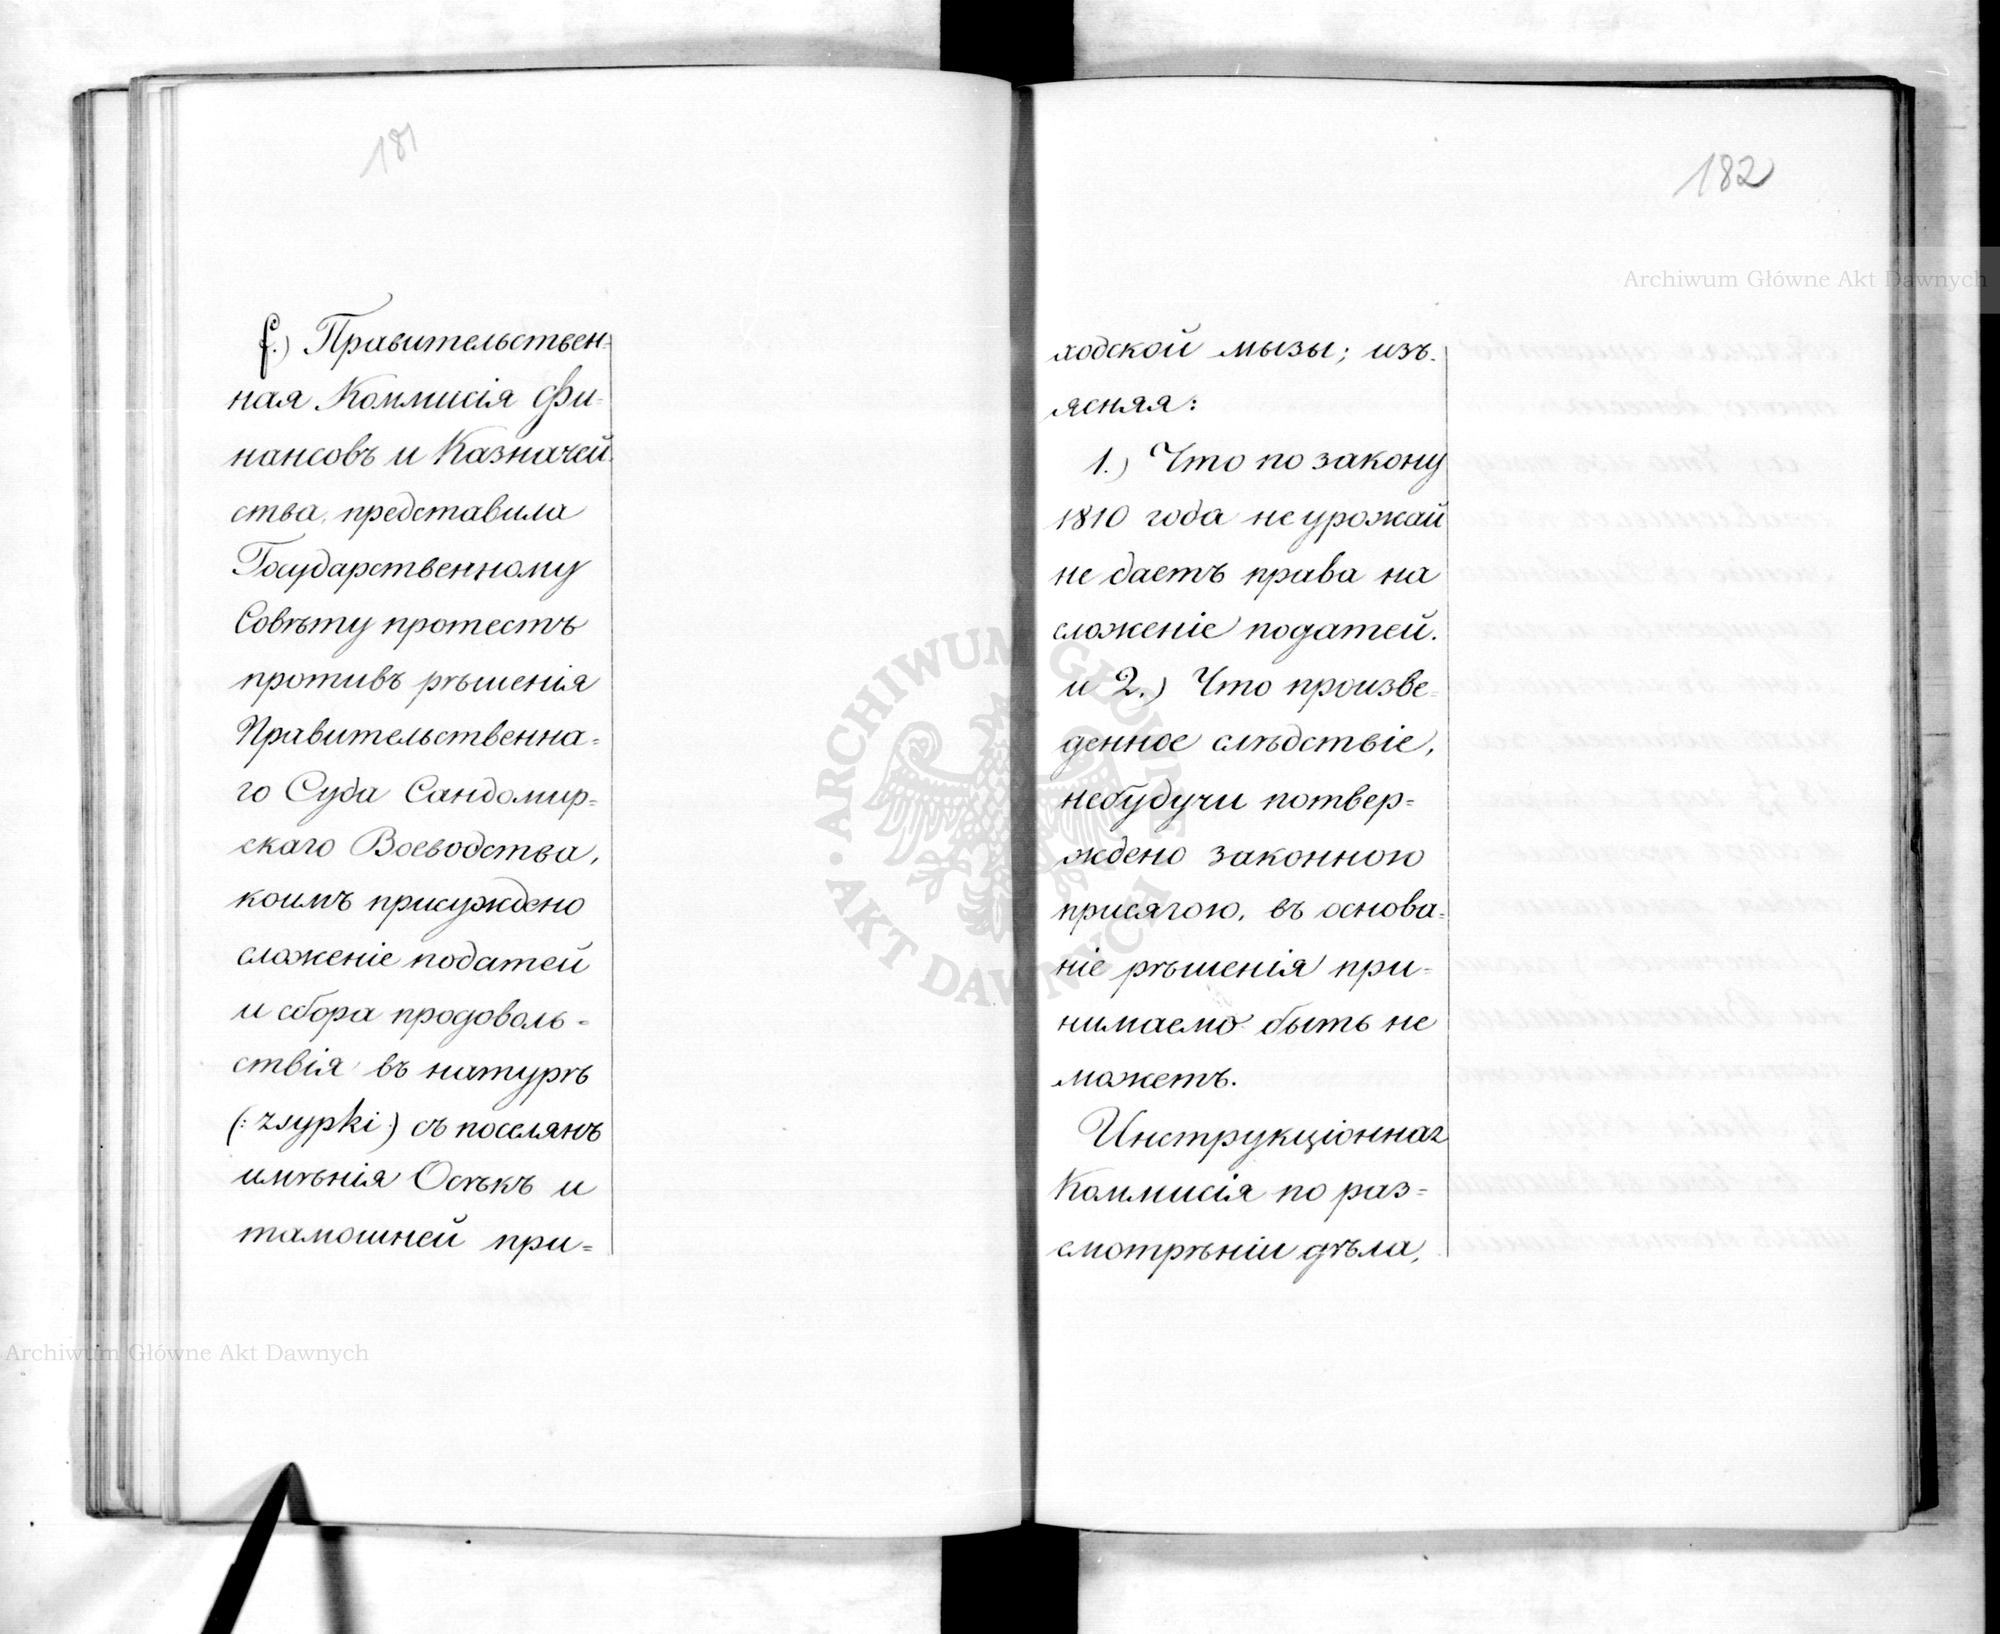 181
f.) Правительствен-
ная Коммисія Фи-
нансовъ и Казначей-
ства, представила
Государственному
Совѣту протестъ
противъ рѣшенія
Правительственна-
го Суда Сандомир-
скаго Воеводства,
коимъ присуждено
сложеніе податей
и сбора продоволь-
ствія въ натурѣ
(: zsypki :) съ поселянъ
имѣнія Осѣкъ и
тамошней при-
182
ходской мызы; изъ-
ясняя:
1.) Что по закону
1810 года неурожай
не даетъ права на
сложеніе податей.
и 2.) Что произве-
денное слѣдствіе,
небудучи потвер-
ждено законною
присягою, въ основа-
ніе рѣшенія при-
нимаемо быть не
можетъ.
Инструкціонная
Коммисія по раз-
смотрѣніи дѣла,
Archiwum Główne Akt Dawnych
ARCHIWUM GŁÓWNE
AKT DAWNYCH
Archiwum Główne Akt Dawnych